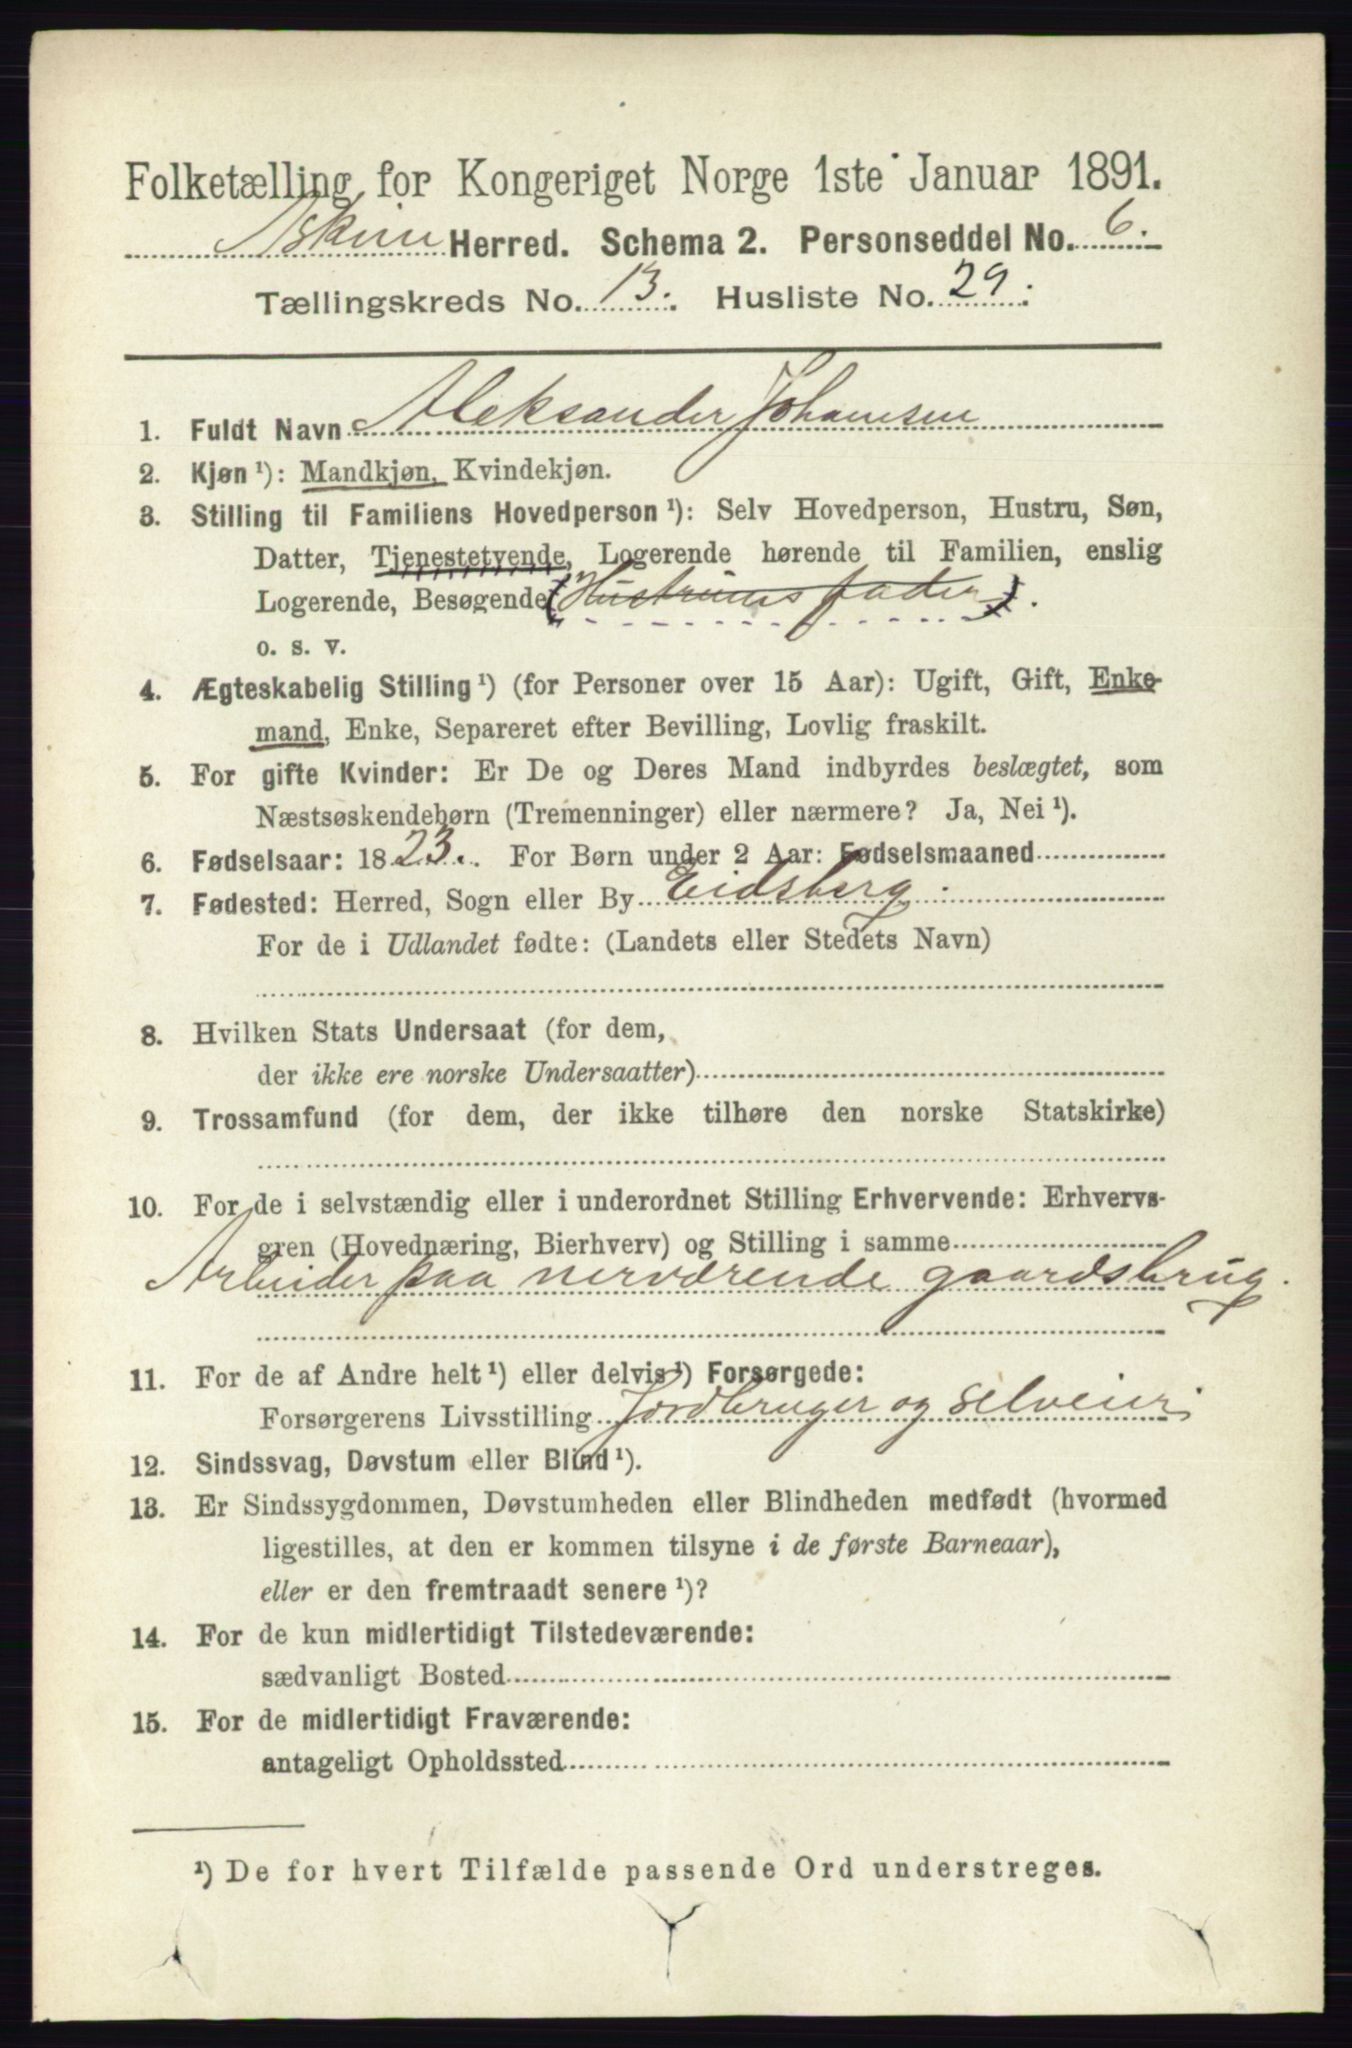 Folketælling for Kongeriget Norge 1ste Januar 1891.
Askim Herred. Schema 2. Personseddel No. 6.
Tællingskreds No. 13. Husliste No. 29.
1. Fuldt Navn Aleksander Johansen
2. Kjøn ¹): Mandkjøn, Kvindekjøn.
3. Stilling til Familiens Hovedperson ¹): Selv Hovedperson, Hustru, Søn,
Datter, Tjenestetyende, Logerende hørende til Familien, enslig
Logerende, Besøgende (Hustruens fader).
o. s. v.
4. Ægteskabelig Stilling ¹) (for Personer over 15 Aar): Ugift, Gift, Enke-
mand, Enke, Separeret efter Bevilling, Lovlig fraskilt.
5. For gifte Kvinder: Er De og Deres Mand indbyrdes beslægtet, som
Næstsøskendebørn (Tremenninger) eller nærmere? Ja, Nei ¹).
6. Fødselsaar: 1823. For Børn under 2 Aar: Fødselsmaaned
7. Fødested: Herred, Sogn eller By Eidsberg.
For de i Udlandet fødte: (Landets eller Stedets Navn)
8. Hvilken Stats Undersaat (for dem,
der ikke ere norske Undersaatter)
9. Trossamfund (for dem, der ikke tilhøre den norske Statskirke)
10. For de i selvstændig eller i underordnet Stilling Erhvervende: Erhvervs-
gren (Hovednæring, Bierhverv) og Stilling i samme
Arbeider paa nerværende gaardsbrug.
11. For de af Andre helt ¹) eller delvis ¹) Forsørgede:
Forsørgerens Livsstilling Jordbruger og selveier
12. Sindssvag, Døvstum eller Blind ¹).
13. Er Sindssygdommen, Døvstumheden eller Blindheden medfødt (hvormed
ligestilles, at den er kommen tilsyne i de første Barneaar),
eller er den fremtraadt senere ¹)?
14. For de kun midlertidigt Tilstedeværende:
sædvanligt Bosted
15. For de midlertidigt Fraværende:
antageligt Opholdssted
¹) De for hvert Tilfælde passende Ord understreges.